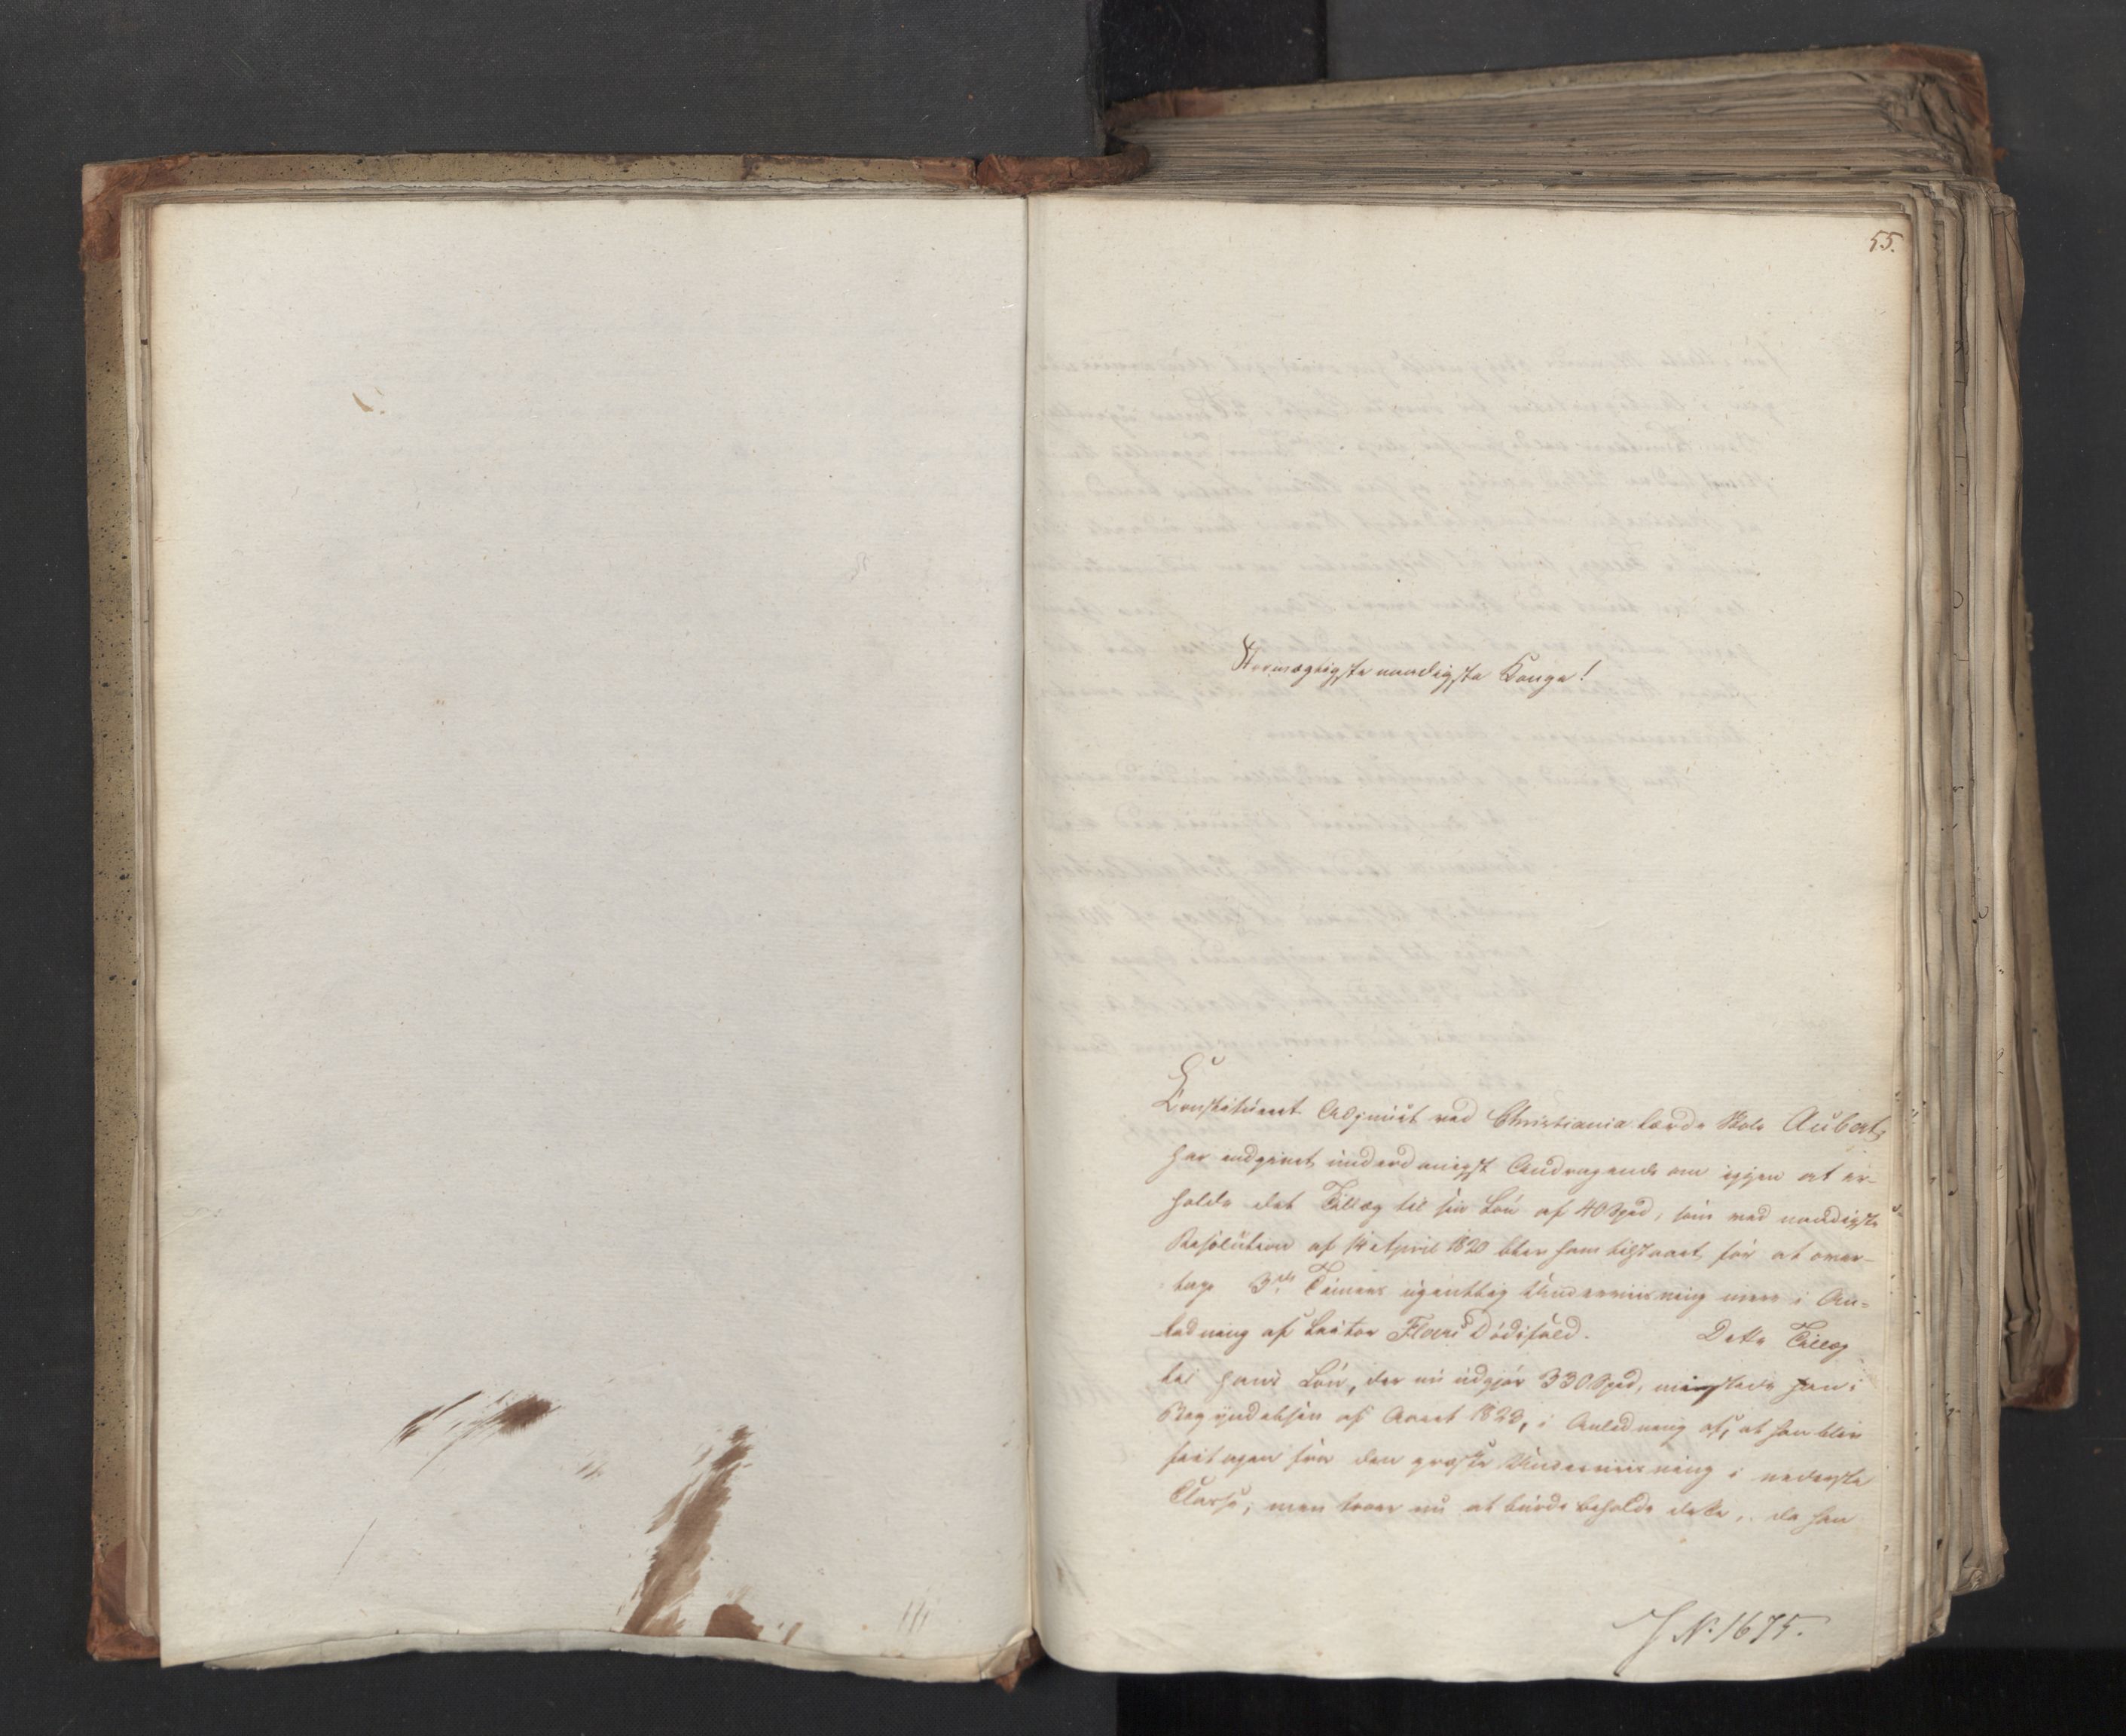 55.
Stormægtigste naadigste Konge!
Constitueret Adjunct ved Christiania lærde Skole Aubert,
har indgivet underdanigst Andragende om igjen at er-
holde det Tillæg til sin Løn af 40 Spd, som ved naadigste
Resolution af 14 April 1820 blev ham tilstaaet for at over-
tage 3de Timers ugentlig Underviisning mere i An-
ledning af Lector Flors Dödsfald. Dette Tillæg
til hans Løn, der nu udgjør 330 Spd, mistede han i
Begyndelsen af Aaret 1823, i Anledning af, at han blev
fritagen for den græske Underviisning i nederste
Classe, men troer nu at burde beholde dette, da han
J N. 1675.